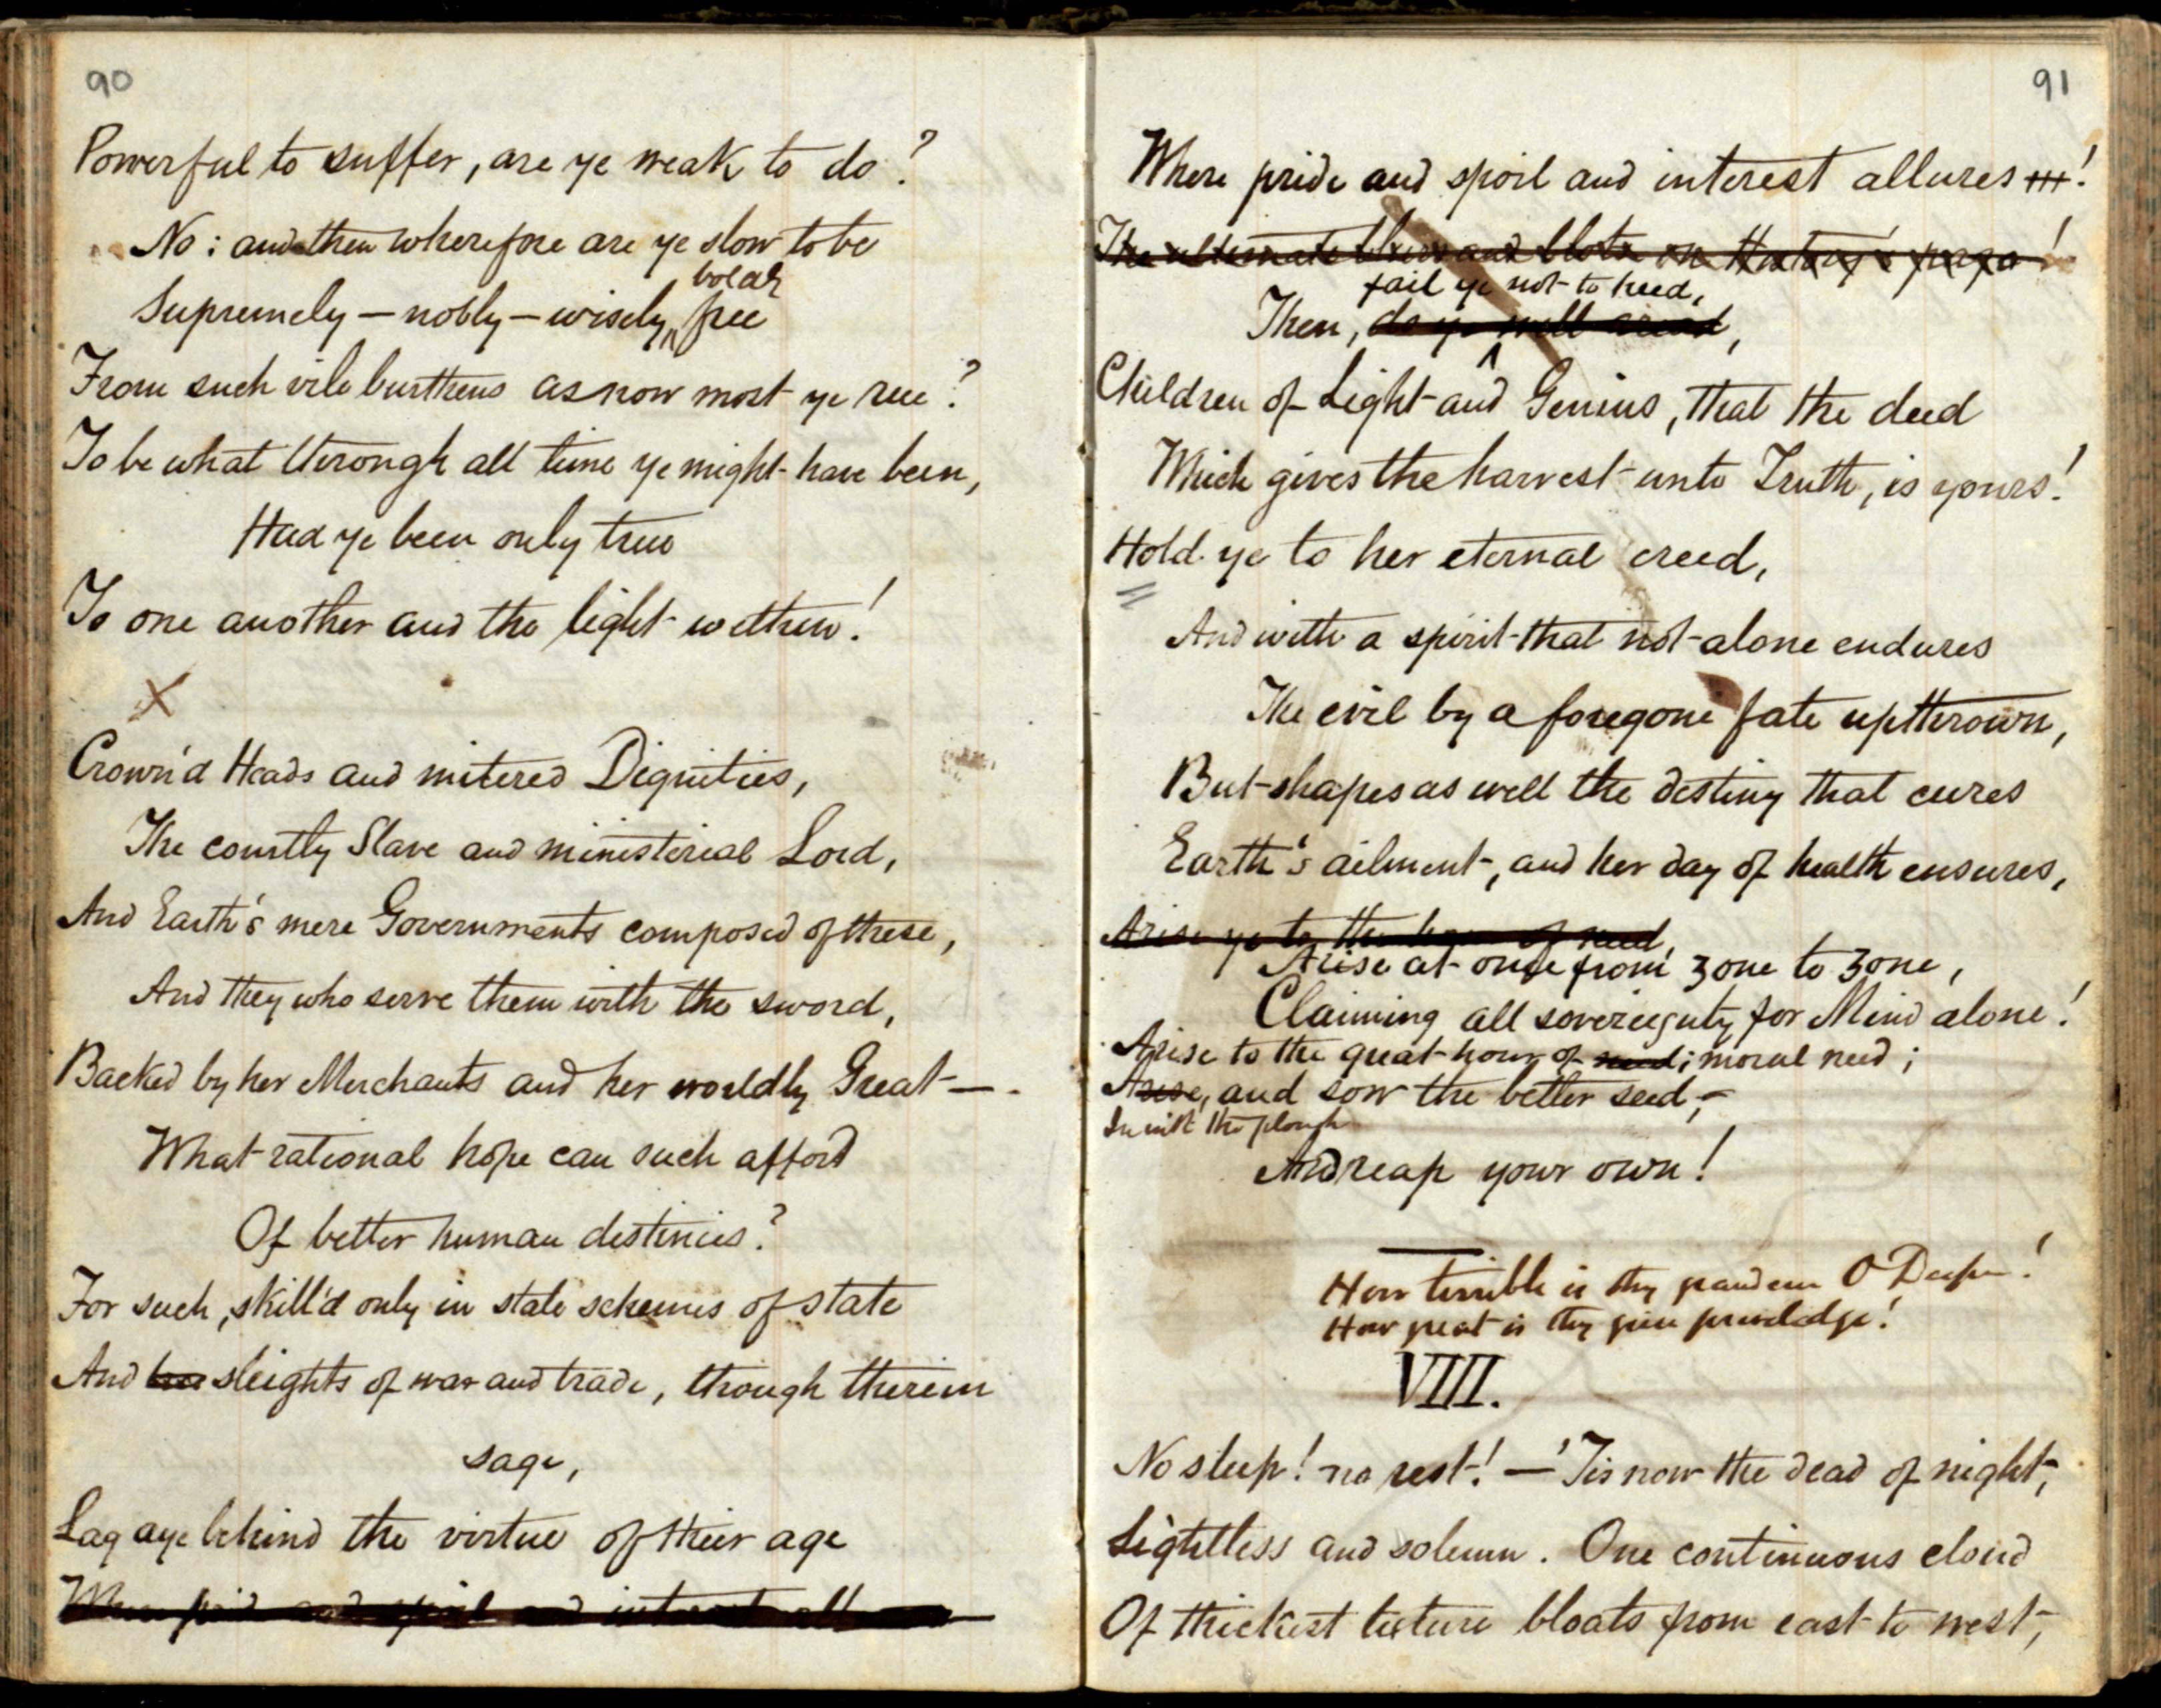 90
Powerful to suffer, are ye weak to do?
No: and then wherefore are ye slow to be
Supremely — nobly — wisely, free
From such vile burthens as now most ye rue?
To be what through all time ye might have been,
Had ye been only true
To one another and the light within!
X
Crown'd Heads and mitered Dignities,
The courtly Slave and ministerial Lord,
And Earth's mere Governments composed of these,
And they who serve them with the sword,
Backed by her Merchants and her worldly Great —
What rational hope can such afford
Of better human destinies?
For such, skill'd only in stale schemes of state
And her sleights of war and trade, though therein
sage,
Lag aye behind the virtue of their age
Where pride and spoil and interest allures
91
Where pride and spoil and interest allures!
The alternate and blots on History's page!
fail ye not to heed,
Then, do ye well aread,
Children of Light and Genius, that the deed
Which gives the harvest unto Truth, is yours!
Hold ye to her eternal creed,
And with a spirit that not alone endures
The evil by a foregone fate upthrown,
But shapes as well the destiny that cures
Earth's ailment, and her day of health ensures,
Arise ye to the hour of need,
Arise at once from zone to zone,
Claiming all sovereignty for Mind alone!
Arise to the great hour of need; moral need;
Arise, and sow the better seed,—
In with the plough
And reap your own!
How terrible is thy grandeur O Deep!
How great is thy priviledge!
VIII.
No sleep! no rest! — 'Tis now the dead of night,
Lightless and solemn. One continuous cloud
Of thickest texture bloats from east to west,